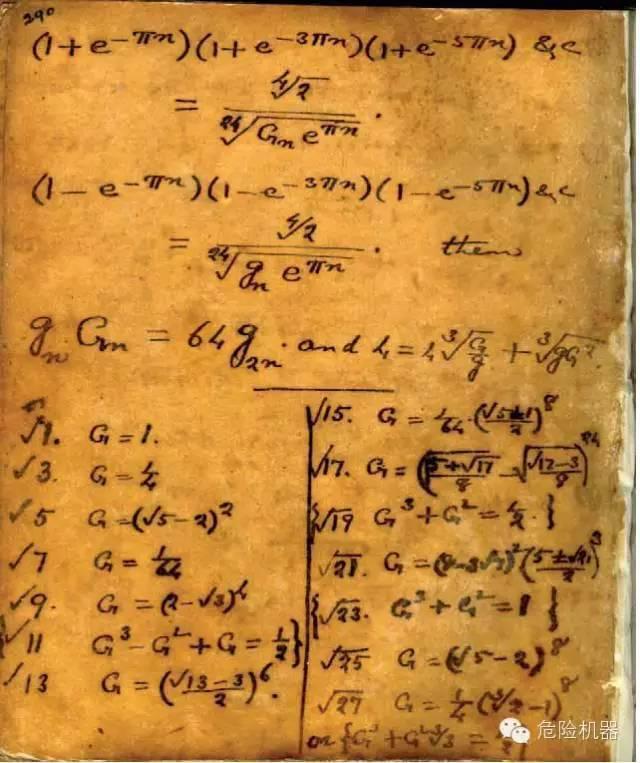 290
(1+e^{-πn})(1+e^{-3πn})(1+e^{-5πn}) &c
= ∜2 / ²⁴√(G_n e^{πn}) .
(1-e^{-πn})(1-e^{-3πn})(1-e^{-5πn}) &c
= ∜2 / ²⁴√(g_n e^{πn}) . then
g_n G_n = 64 g_{2n} . and 4 = 4 ∛(G/g) + ∛(gG²) .
√1. G = 1.
√3. G = 1/4
√5 G = (√5-2)²
√7 G = 1/64
√9. G = (2-√3)⁴
{√11 G³ - G² + G = 1/2}
√13 G = ((√13-3)/2)⁶.
√15. G = 1/64 · ((√5±1)/2)⁸
√17. G = (√((5+√17)/8) - √((√17-3)/8))²⁴
{√19 G³ + G² = 1/2. }
√21. G = (8-3√7)² ((5±√21)/2)³
{√23. G³ + G² = 1 }
√25 G = (√5-2)⁸
√27 G = 1/4 (∛2-1)⁸
or {G³ + G²∛3 =
危险机器